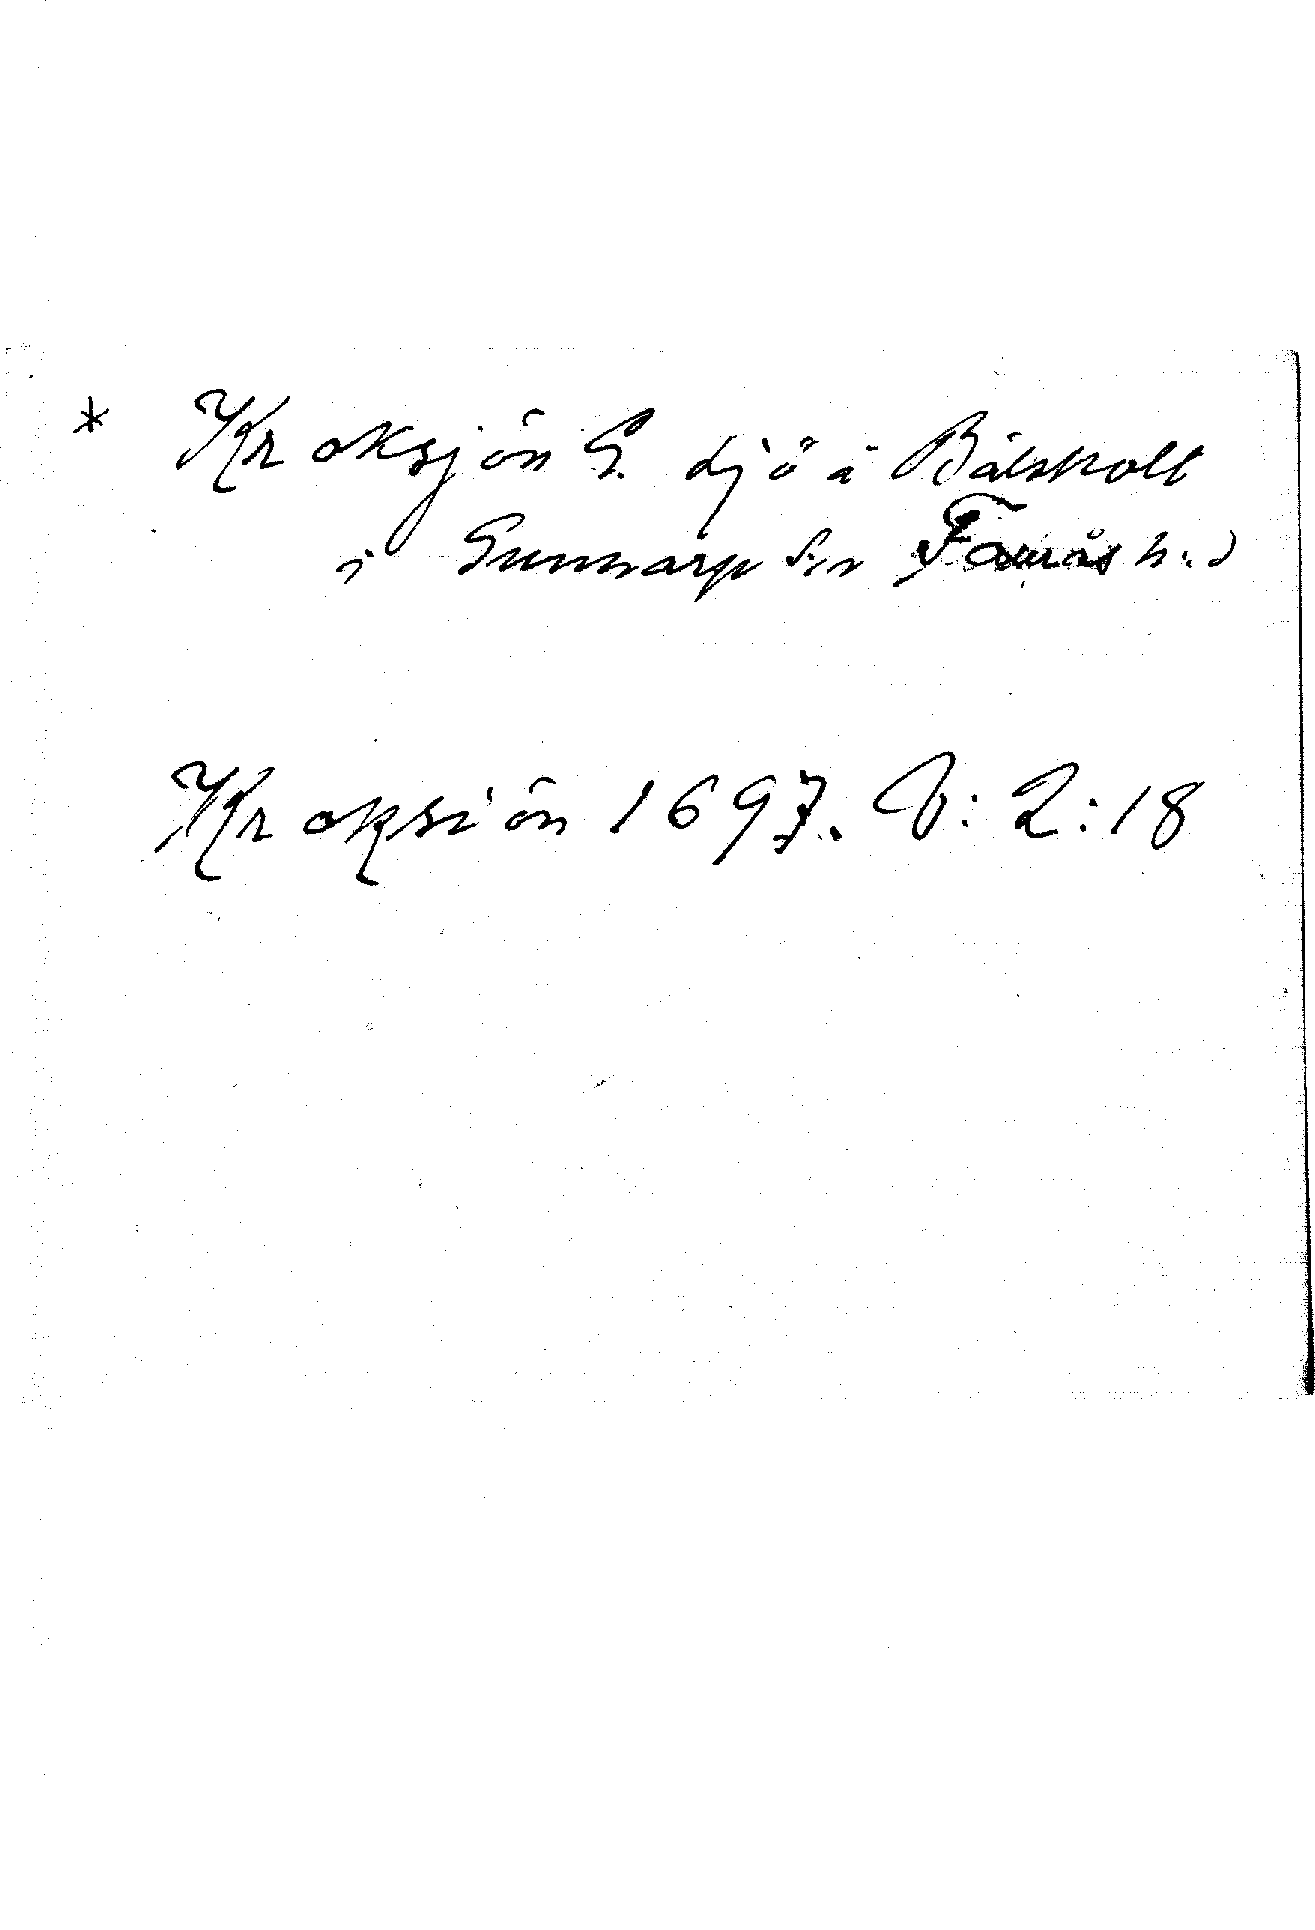 * Kroksjön G. sjö å Bälskolt
i Gunnarp sn Faurås hd
Kroksiön 1697. V: 2:18